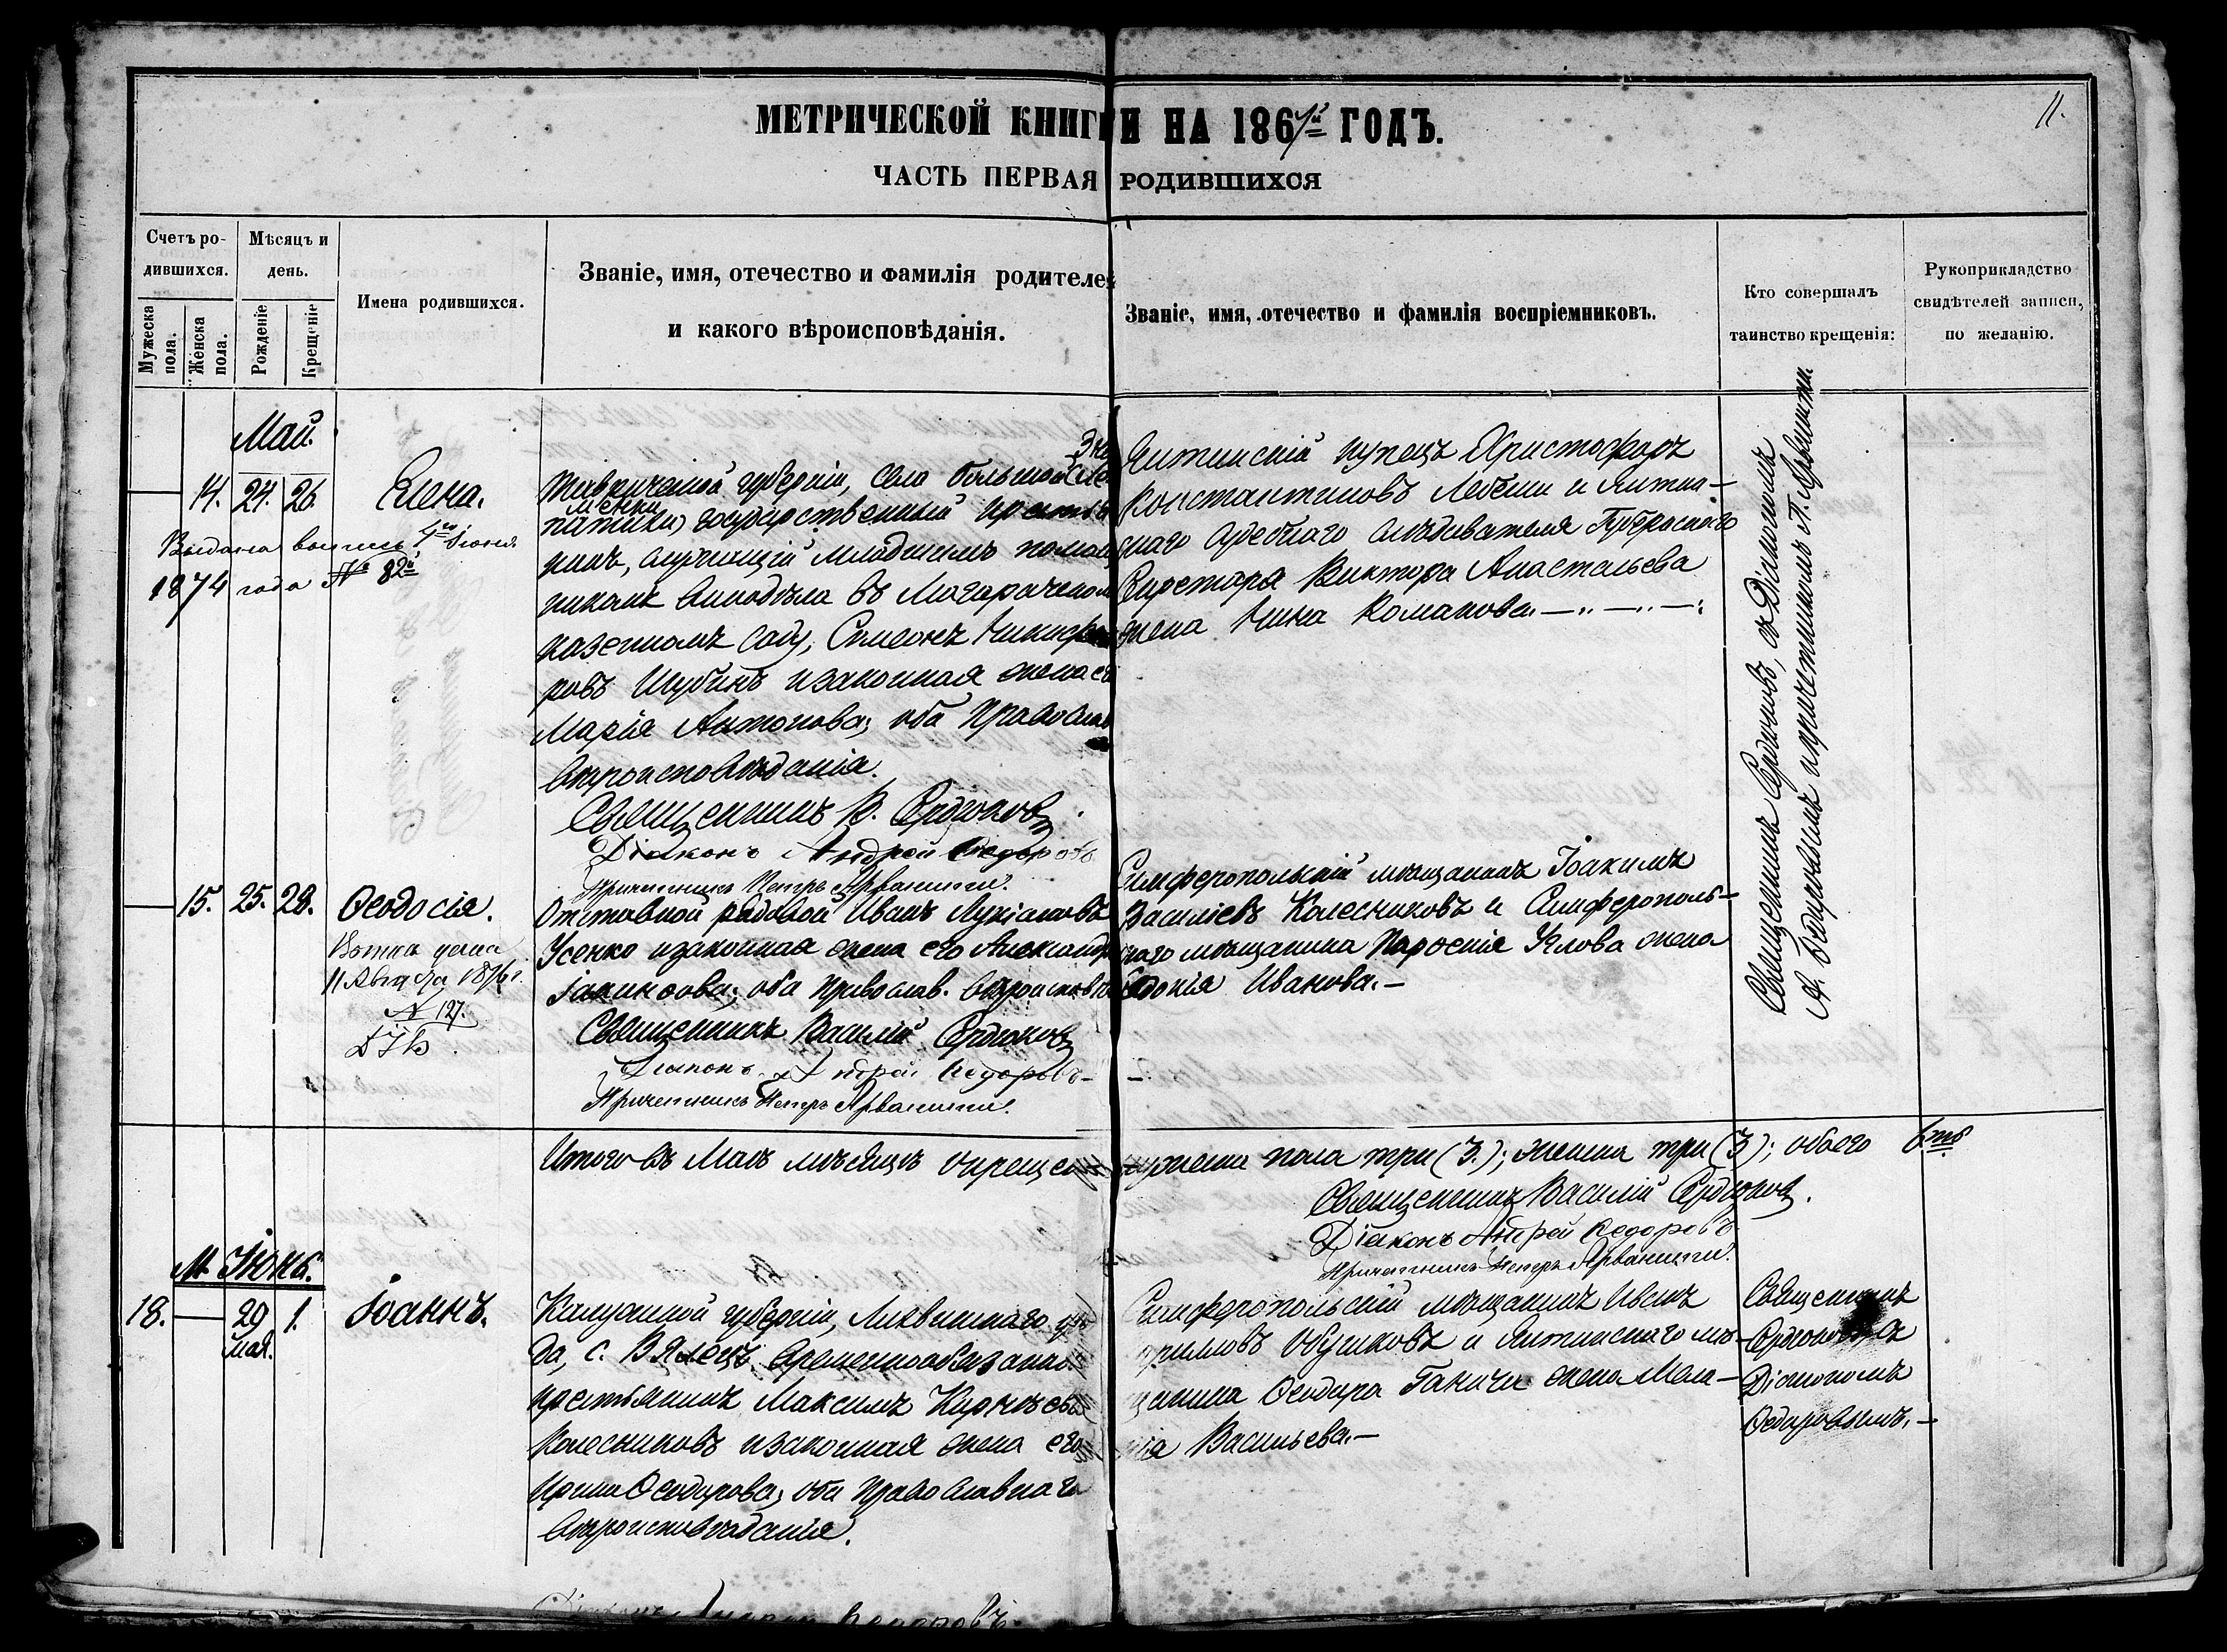 11.
МЕТРИЧЕСКОЙ КНИГИ НА 186 ГОДЪ.
ЧАСТЬ ПЕРВАЯ РОДИВШИХСЯ
Счетъ ро-
дившихся.
Мужеска пола.
Женска пола.
Мѣсяцъ и
день.
Рожденіе
Крещеніе
Имена родившихся.
Званіе, имя, отечество и фамилія родителей
и какого вѣроисповѣданія.
Званіе, имя, отечество и фамилія воспріемниковъ.
Кто совершалъ
таинство крещенія:
Рукоприкладство
свидѣтелей записи,
по желанію.
Май.
14. 24. 26. Елена.
Выдана выпись 4го Іюня
1874 года № 82й
Таврической губерніи, села большой
государственный
никъ, служащій младшимъ помощ
никомъ винодѣла въ Магарачском
казенномъ саду, Симеонъ Никифо
ровъ Шубинъ и законная жена ег
Марія Антонова, оба Православ
вѣроисповѣданія.
Священникъ В. Сердюковъ
Діаконъ Андрей Ѳедоровъ
Причетникъ Петръ Арванити.
Ялтинскій купецъ Христофоръ
Константиновъ и Ялтин-
скаго судебнаго слѣдователя Губернскаго
Секретаря Виктора Анастасьева
жена Нина Романова.
Священникъ Сердюковъ, съ Діакономъ
А. Ѳедоровымъ и причетникомъ П. Арванити.
15. 25. 28. Ѳеодосія.
11 Августа 1876 г.
№ 127.
Отставной рядовой Иванъ Лукіановъ
Усенко и законная жена его Александр
Іакинѳова; оба Православ. вѣроисповѣ
Священникъ Василій Сердюковъ
Діаконъ Андрей Ѳедоровъ
Причетникъ Петръ Арванити.
Симферопольскій мѣщанинъ Іоакимъ
Василіевъ Колесниковъ и Симферополь-
скаго мѣщанина жена
Иванова.
Итого въ Маѣ мѣсяцѣ окрещено мужеска пола три (3.); женска три (3); обоего 6ть
Священникъ Василій Сердюковъ.
Діаконъ Андрей Ѳедоровъ
Причетникъ Петръ Арванити.
М. Іюнь.
18. 29 мая. 1. Іоаннъ.
Калужской губерніи, Лихвинскаго уѣз
да, с. Вялецъ временнообязанно
крестьянинъ Максимъ
Колесниковъ и законная жена его
Ирина Ѳеодорова, оба Православнаго
вѣроисповѣданія.
Симферопольскій мѣщанинъ Иванъ
и Ялтинскаго мѣ-
щанина Ѳеодора жена Мела-
нія Васильева.
Священникъ
Сердюковъ съ
Діакономъ
Ѳедоровымъ.
Діаконъ Андрей Ѳедоровъ.